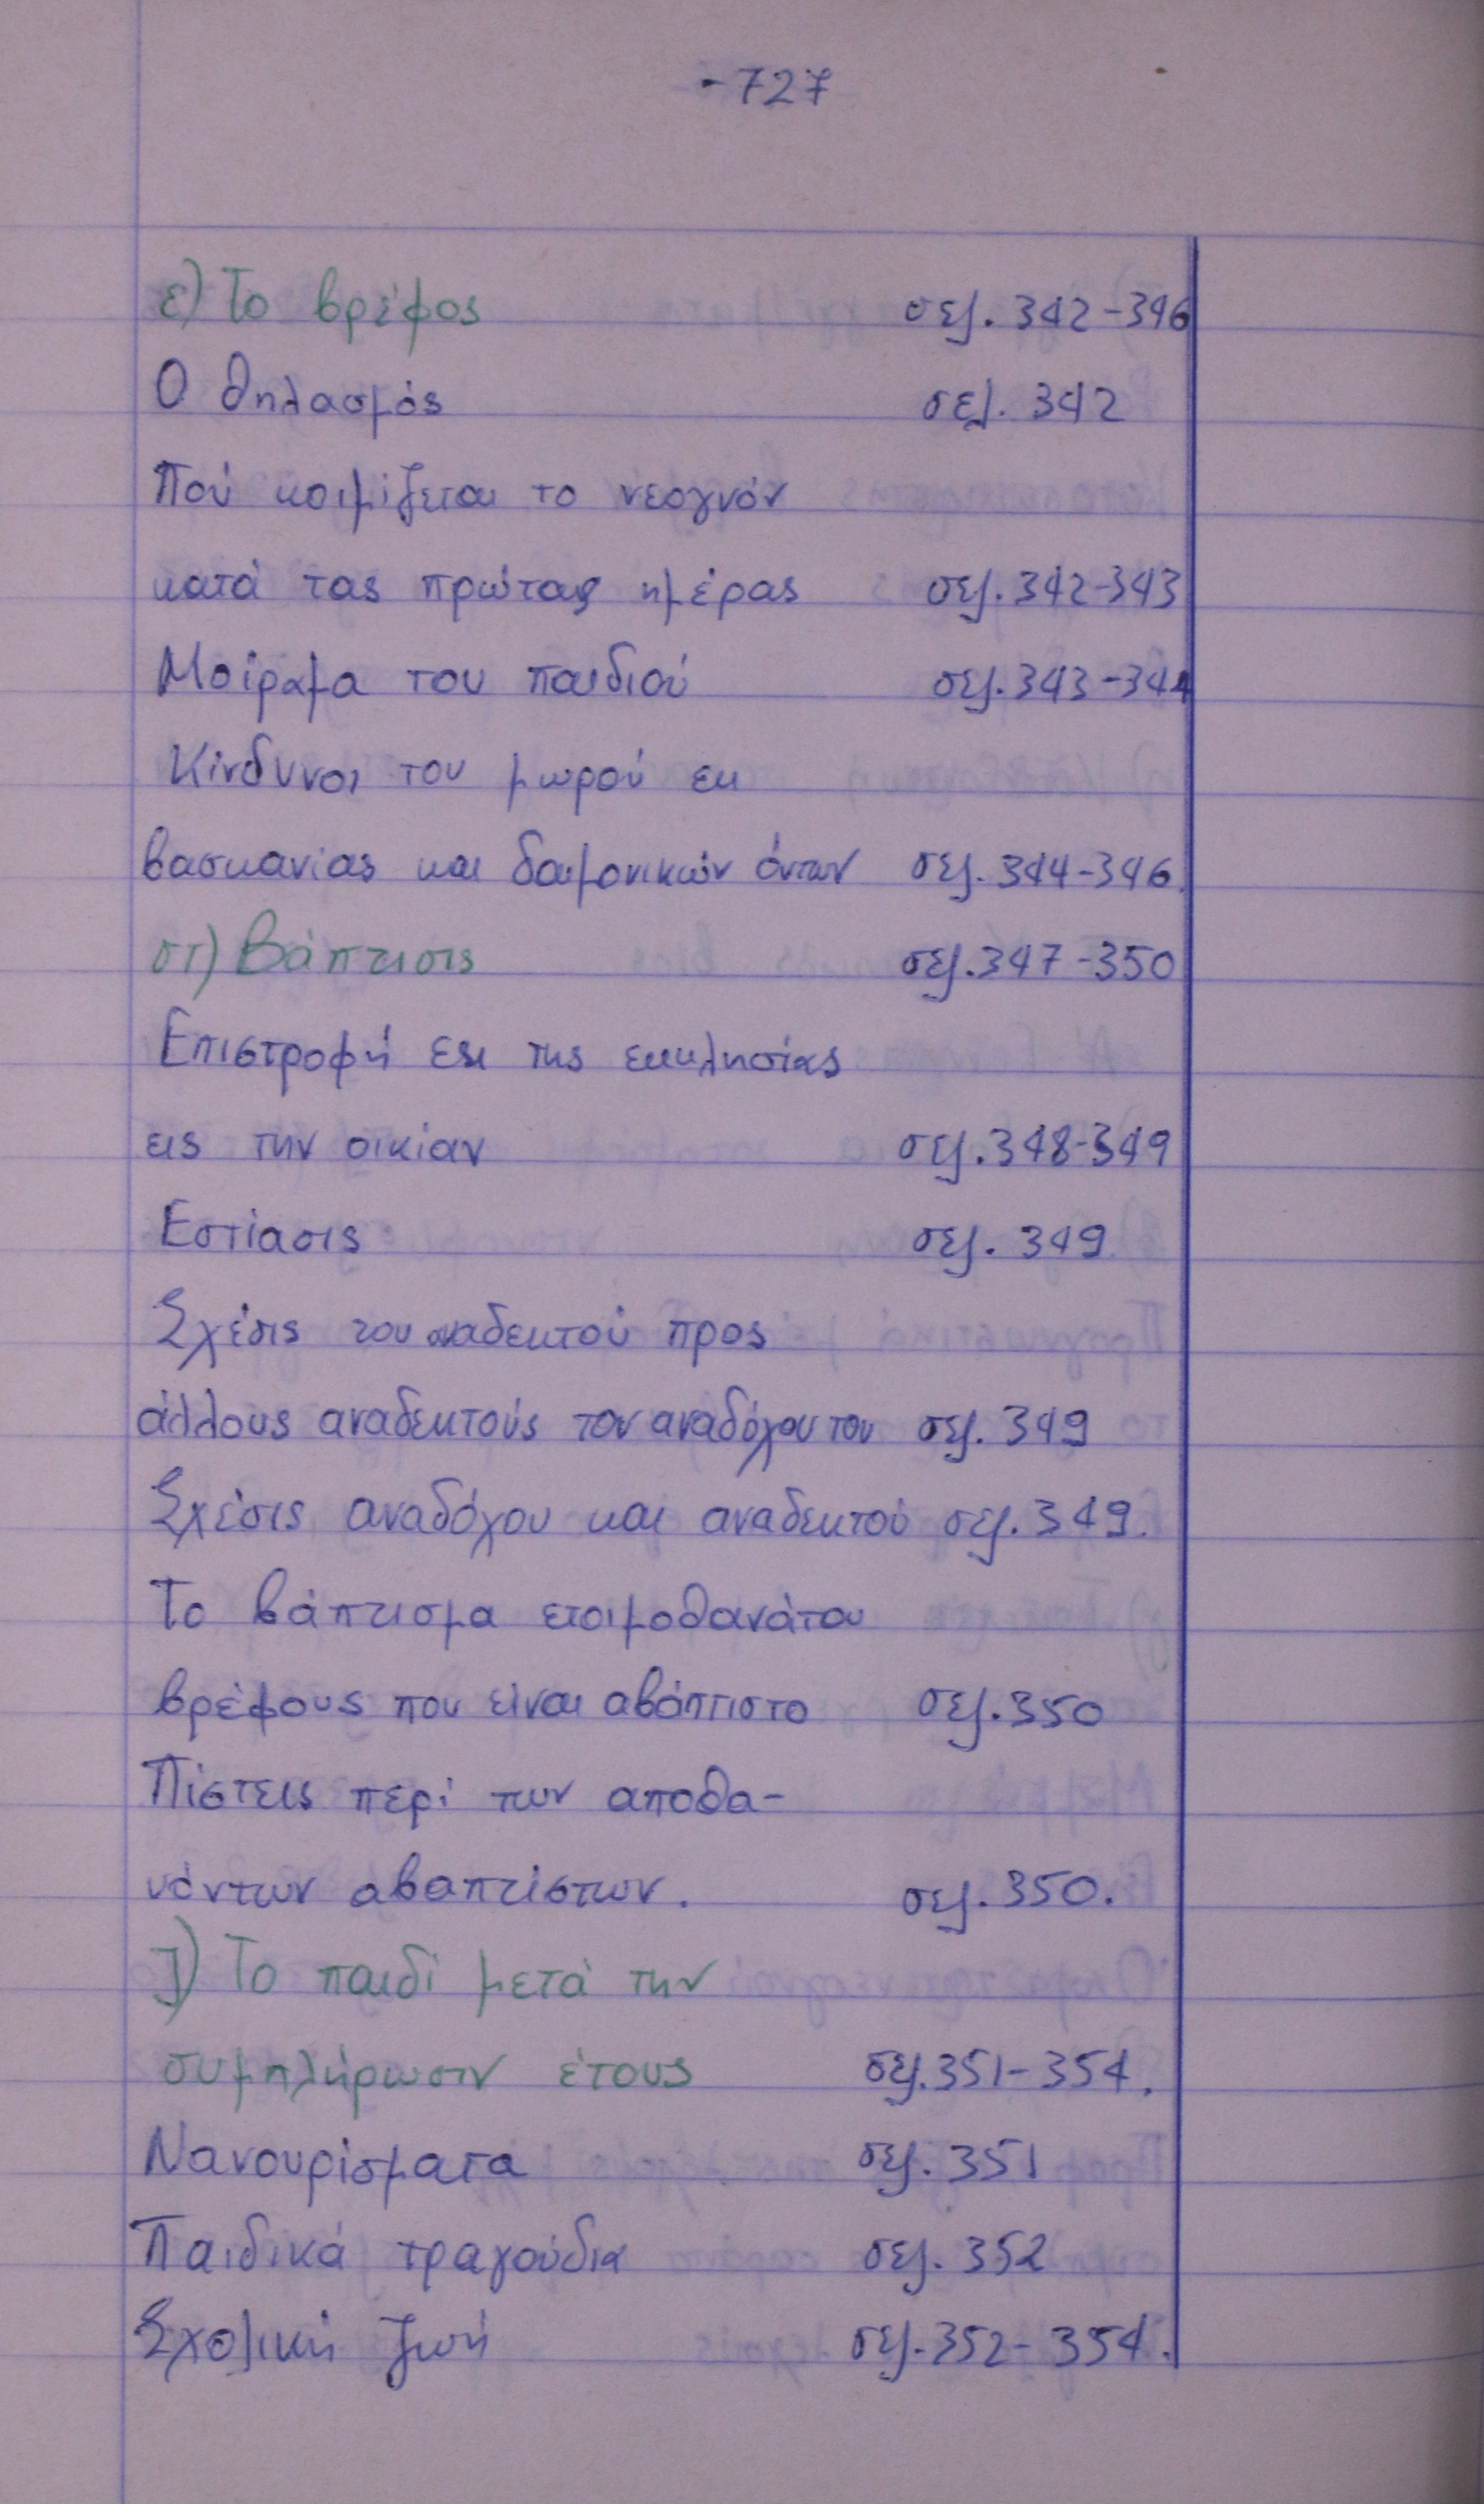 -727
ε) Το βρέφος σελ. 342-346
Ο θηλασμός σελ. 342
Πού κοιμίζεται το νεογνόν
κατά τας πρώτας ημέρας σελ. 342-343
Μοίραμα του παιδιού σελ. 343-344
Κίνδυνοι του μωρού εκ
βασκανίας και δαιμονικών όντων σελ. 344-346.
στ) Βάπτισις σελ. 347-350
Επιστροφή εκ της εκκλησίας
εις την οικίαν σελ. 348-349
Εστίασις σελ. 349
Σχέσις του αναδεκτού προς
άλλους αναδεκτούς του αναδόχου του σελ. 349
Σχέσις αναδόχου και αναδεκτού σελ. 349.
Το βάπτισμα ετοιμοθανάτου
βρέφους που είναι αβάπτιστο σελ. 350
Πίστεις περί των αποθα-
νόντων αβαπτίστων. σελ. 350.
ζ) Το παιδί μετά την
συμπλήρωσιν έτους σελ. 351-354.
Νανουρίσματα σελ. 351
Παιδικά τραγούδια σελ. 352
Σχολική ζωή σελ. 352-354.